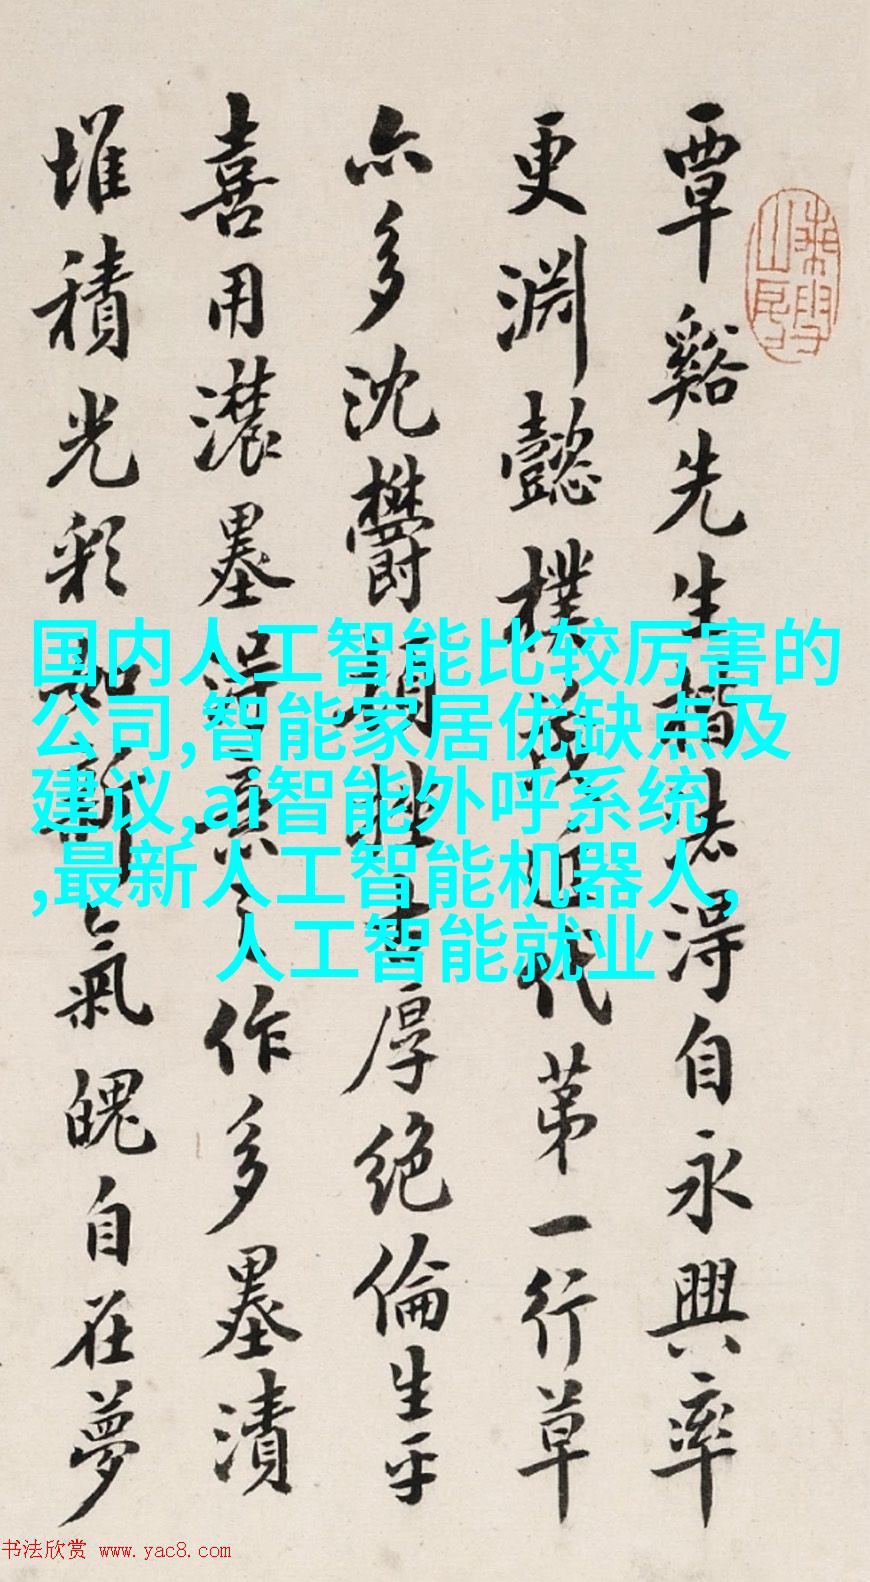 覃谿先生楷法得自永興率
更淵懿樸茂近代第一行草
亦多沈鬱頓挫古厚絕倫生平
喜用濃墨得意之作多墨漬
堆積光彩如新氣魄自在夢
国内人工智能比较厉害的
公司,智能家居优缺点及
建议,ai智能外呼系统
,最新人工智能机器人,
人工智能就业
书法欣赏 www.yac8.com